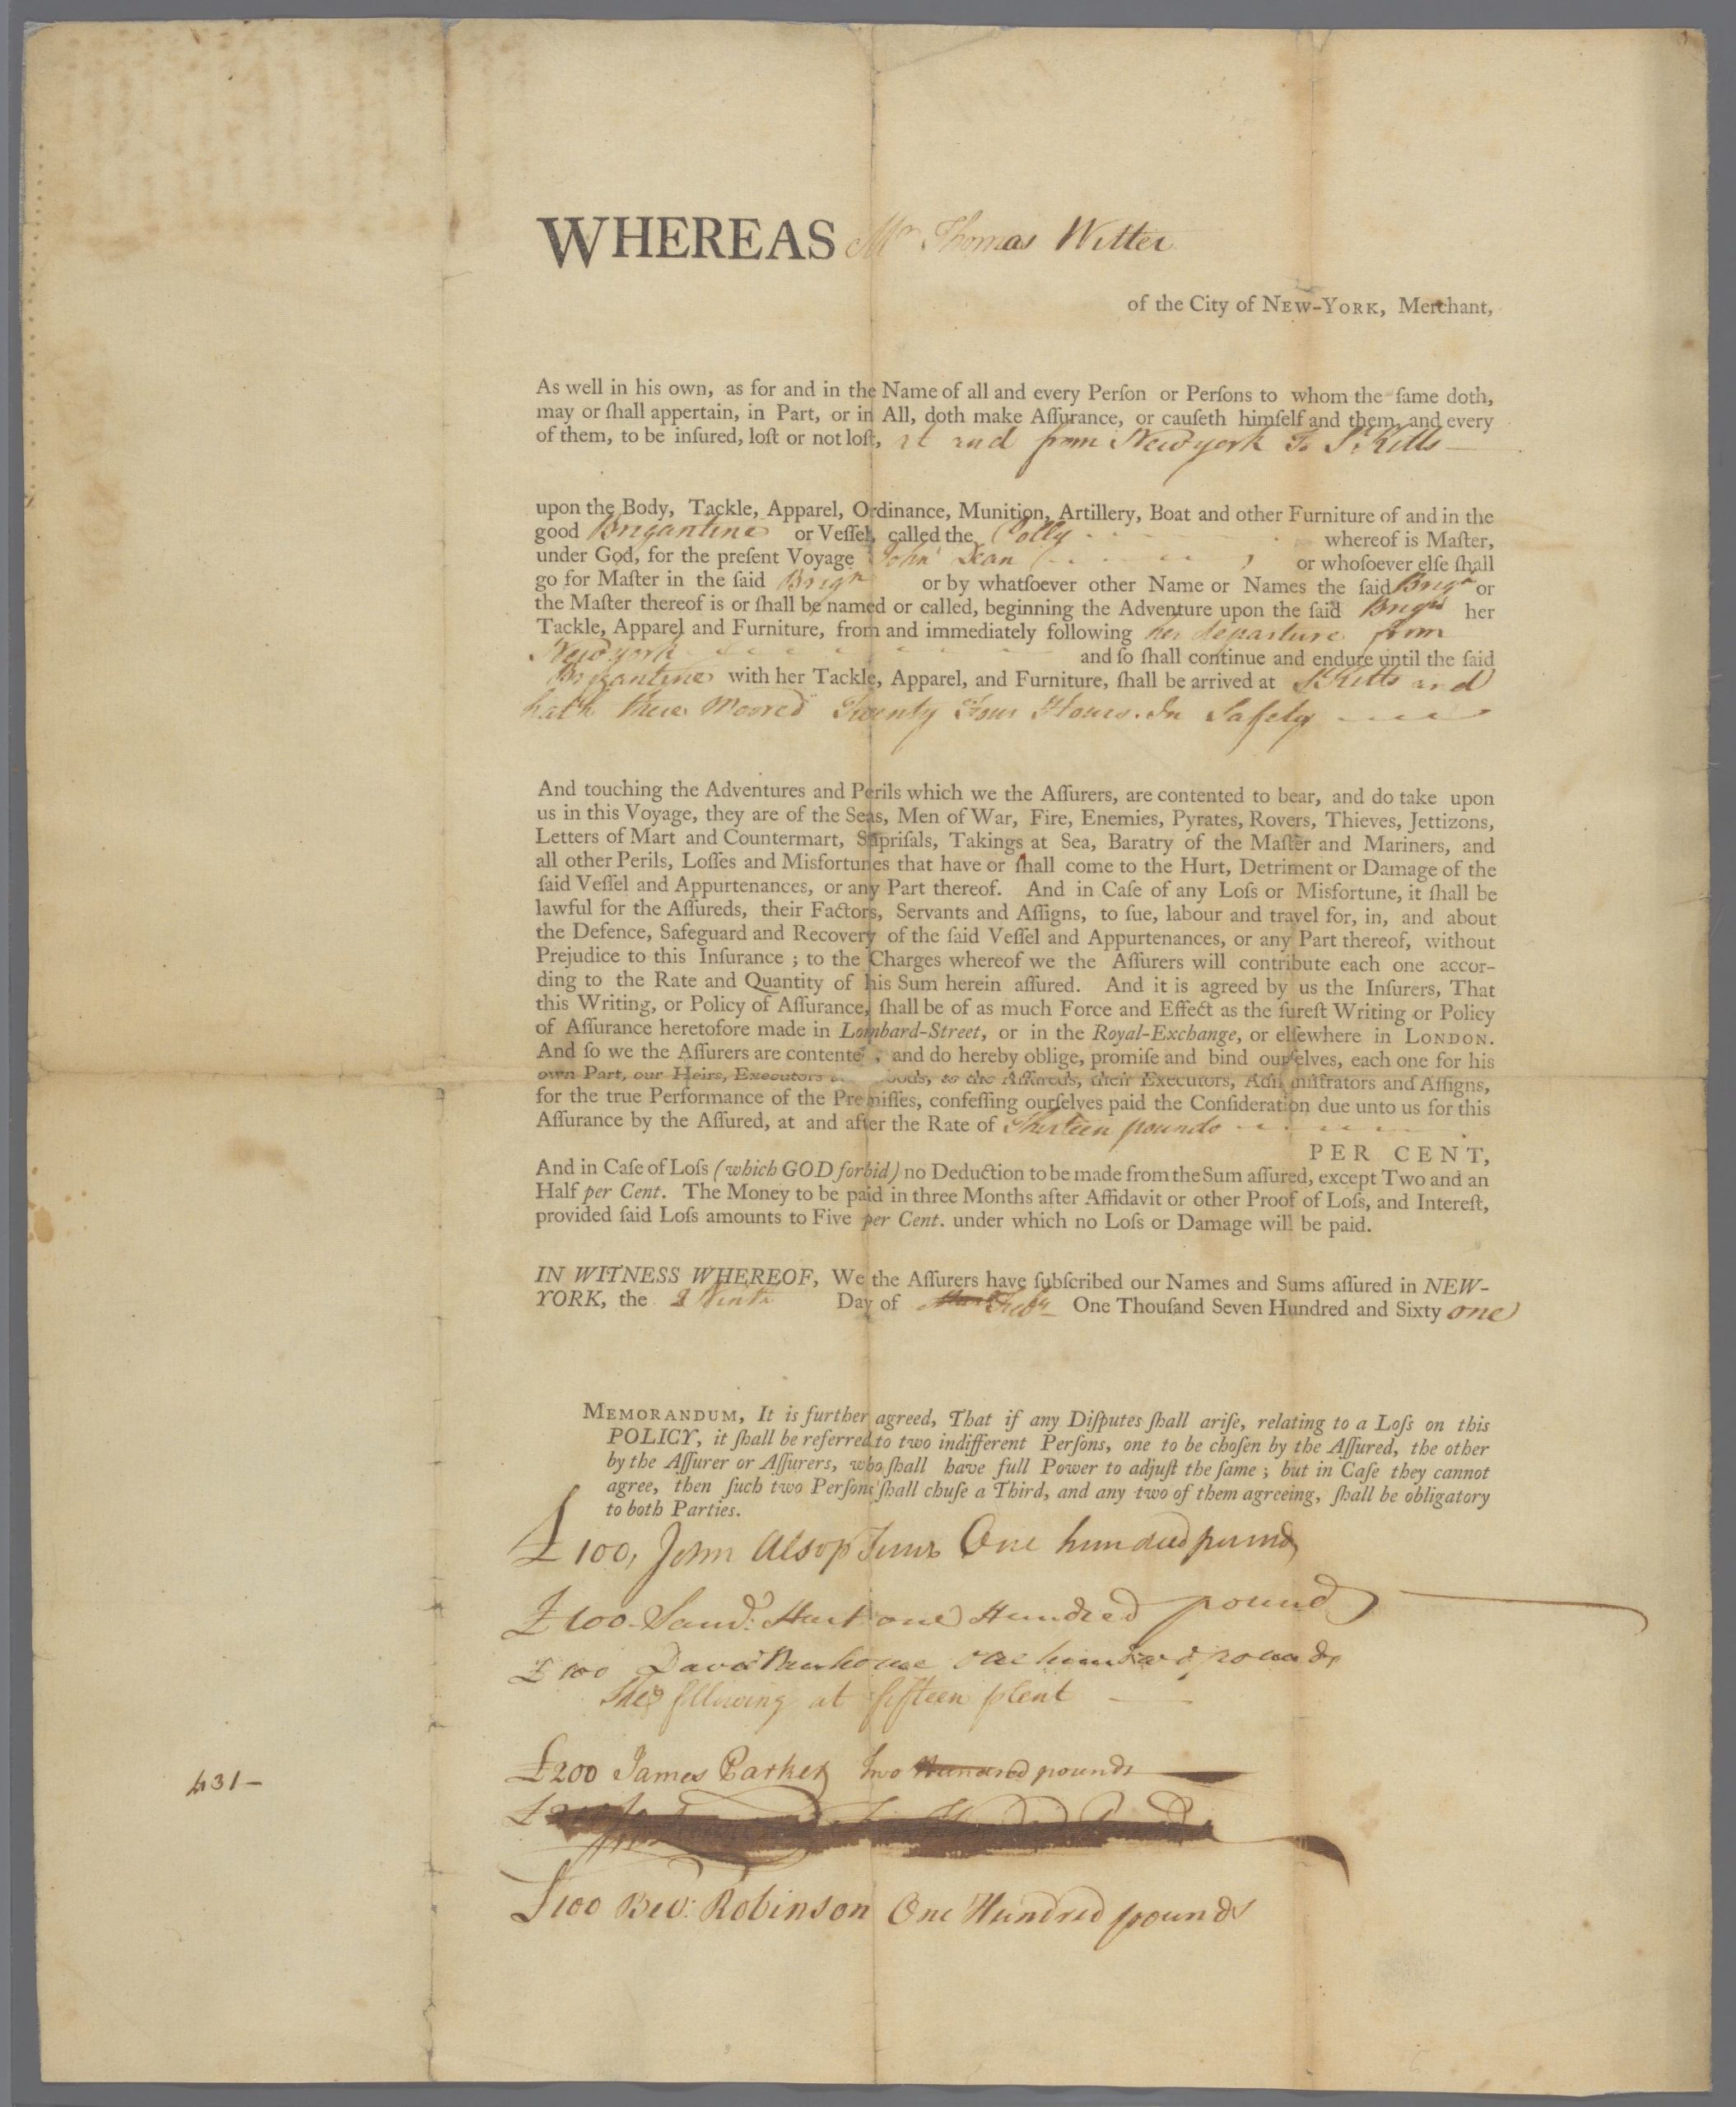 WHEREAS Mr Thomas Witter
of the City of NEW-YORK, Merchant,
As well in his own, as for and in the Name of all and every Perſon or Perſons to whom the ſame doth,
may or ſhall appertain, in Part, or in All, doth make Aſſurance, or cauſeth himſelf and them, and every
of them, to be inſured, loſt or not loſt, at and from Newyork To St Kitts
upon the Body, Tackle, Apparel, Ordinance, Munition, Artillery, Boat and other Furniture of and in the
good Brigantine or Veſſel, called the Polly whereof is Maſter,
under God, for the preſent Voyage John Dean or whoſoever elſe ſhall
go for Maſter in the ſaid Brign or by whatſoever other Name or Names the ſaid Brign or
the Maſter thereof is or ſhall be named or called, beginning the Adventure upon the ſaid Brign her
Tackle, Apparel and Furniture, from and immediately following her departure from
Newyork and ſo ſhall continue and endure until the ſaid
Brigantine with her Tackle, Apparel, and Furniture, ſhall be arrived at St Kitts and
hath there Moored Twenty Four Hours. In Safety
And touching the Adventures and Perils which we the Aſſurers, are contented to bear, and do take upon
us in this Voyage, they are of the Seas, Men of War, Fire, Enemies, Pyrates, Rovers, Thieves, Jettizons,
Letters of Mart and Countermart, Supriſals, Takings at Sea, Baratry of the Maſter and Mariners, and
all other Perils, Loſſes and Misfortunes that have or ſhall come to the Hurt, Detriment or Damage of the
ſaid Veſſel and Appurtenances, or any Part thereof. And in Caſe of any Loſs or Misfortune, it ſhall be
lawful for the Aſſureds, their Factors, Servants and Aſſigns, to ſue, labour and travel for, in, and about
the Defence, Safeguard and Recovery of the ſaid Veſſel and Appurtenances, or any Part thereof, without
Prejudice to this Inſurance ; to the Charges whereof we the Aſſurers will contribute each one accor-
ding to the Rate and Quantity of his Sum herein aſſured. And it is agreed by us the Inſurers, That
this Writing, or Policy of Aſſurance, ſhall be of as much Force and Effect as the ſureſt Writing or Policy
of Aſſurance heretofore made in Lombard-Street, or in the Royal-Exchange, or elſewhere in LONDON.
And ſo we the Aſſurers are contented, and do hereby oblige, promiſe and bind ourſelves, each one for his
own Part, our Heirs, Executors and Goods, to the Aſſureds, their Executors, Adminiſtrators and Aſſigns,
for the true Performance of the Premiſſes, confeſſing ourſelves paid the Conſideration due unto us for this
Aſſurance by the Aſſured, at and after the Rate of Thirteen pounds
PER CENT,
And in Caſe of Loſs (which GOD forbid) no Deduction to be made from the Sum aſſured, except Two and an
Half per Cent. The Money to be paid in three Months after Affidavit or other Proof of Loſs, and Intereſt,
provided ſaid Loſs amounts to Five per Cent. under which no Loſs or Damage will be paid.
IN WITNESS WHEREOF, We the Aſſurers have ſubſcribed our Names and Sums aſſured in NEW-
YORK, the Ninth Day of Feby One Thouſand Seven Hundred and Sixty one
MEMORANDUM, It is further agreed, That if any Diſputes ſhall ariſe, relating to a Loſs on this
POLICY, it ſhall be referred to two indifferent Perſons, one to be choſen by the Aſſured, the other
by the Aſſurer or Aſſurers, who ſhall have full Power to adjuſt the ſame ; but in Caſe they cannot
agree, then ſuch two Perſons ſhall chuſe a Third, and any two of them agreeing, ſhall be obligatory
to both Parties.
£100, John Alsop Junr One hundred pounds
£100 Saml: Hart one Hundred pound
£100 David one hundred pounds
The following at fifteen pCent
£200 James Parker two Hundred pounds
£100 Bev: Robinson One Hundred pounds
431-